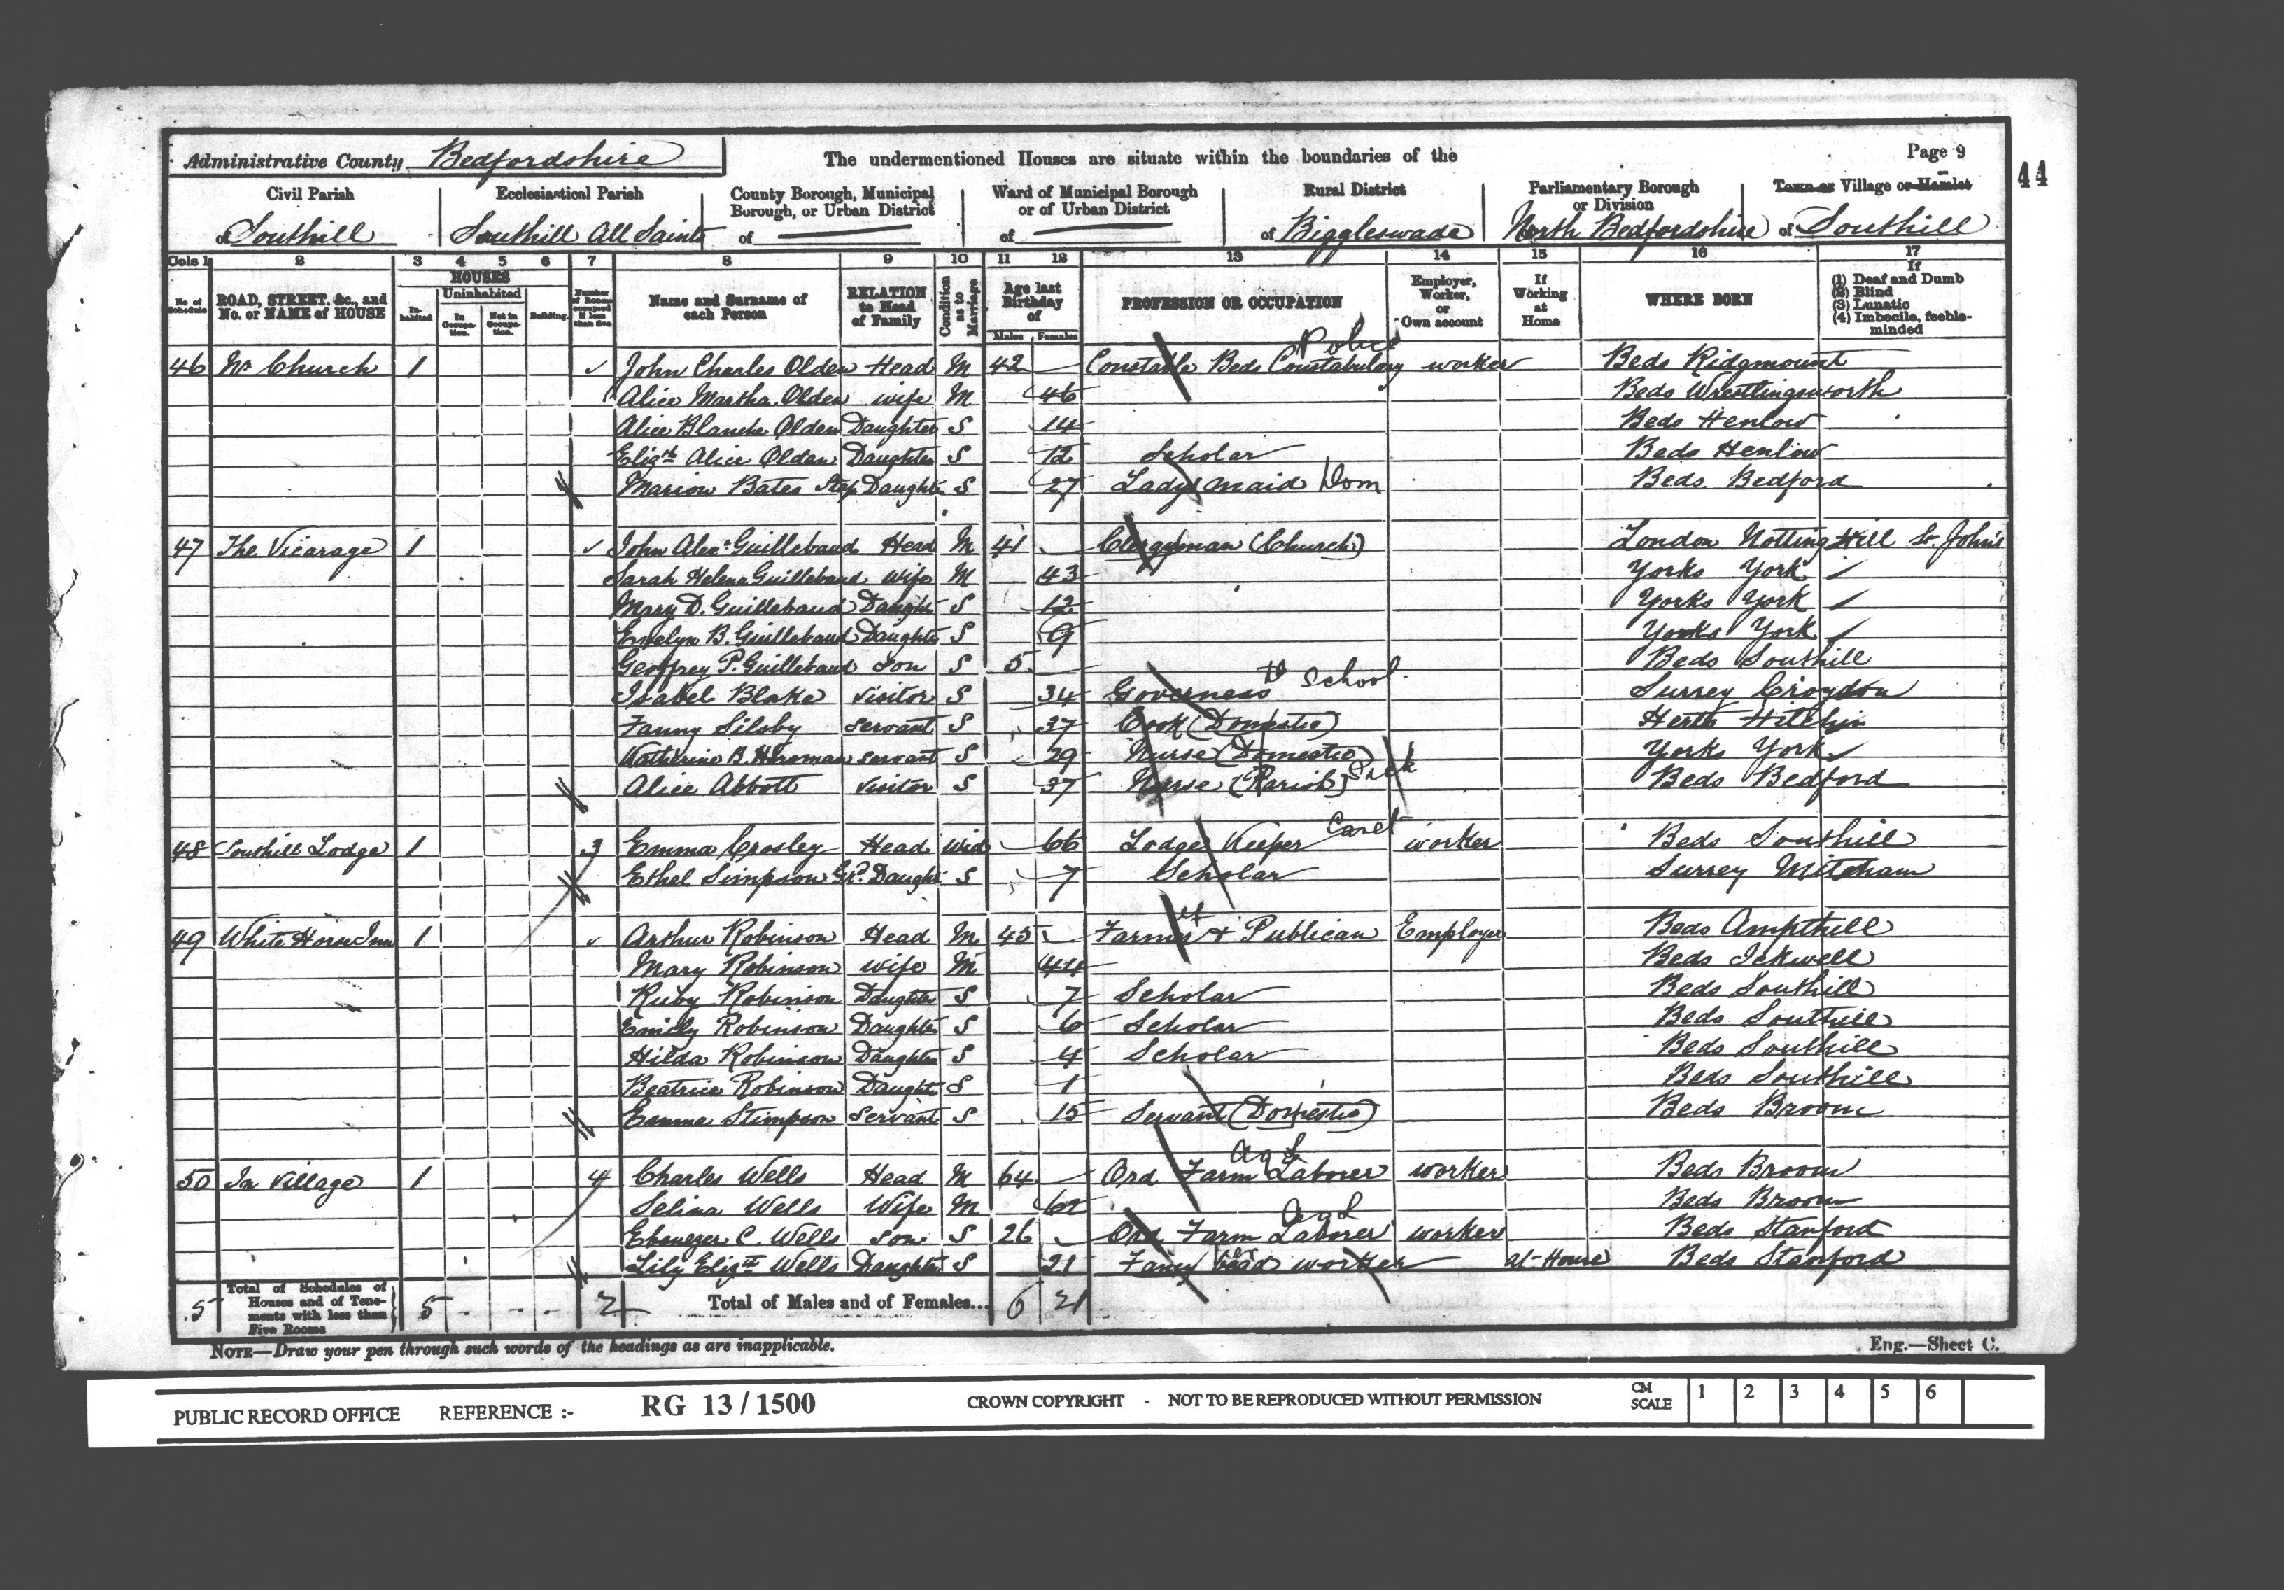 Administrative County Bedfordshire The undermentioned Houses are situate within the boundaries of the Page 9
44
Civil Parish Ecclesiastical Parish County Borough, Municipal Borough, or Urban District Ward of Municipal Borough or of Urban District Rural District Parliamentary Borough or Division Town or Village or Hamlet
of Southill Southill All Saints of of of Biggleswade North Bedfordshire of Southill
Cols 1 2 3 4 5 6 7 8 9 10 11 12 13 14 15 16 17
No. of Schedule ROAD, STREET, &c., and No. or NAME of HOUSE HOUSES Inhabited Uninhabited In Occupation. Not in Occupation. Building. Number of Rooms occupied if less than five Name and Surname of each Person RELATION to Head of Family Condition as to Marriage Age last Birthday of Males Females PROFESSION OR OCCUPATION Employer, Worker, or Own account If Working at Home WHERE BORN If (1) Deaf and Dumb (2) Blind (3) Lunatic (4) Imbecile, feeble-minded
Police
46 Nr Church 1 John Charles Olden Head M 42 Constable Beds Constabulary worker Beds Ridgmount
Alice Martha Olden wife M 46 Beds Wrestlingsworth
Alice Blanche Olden Daughter S 14 Beds Henlow
Elizth Alice Olden Daughter S 12 Scholar Beds Henlow
Marion Bates Step Daught. S 27 Ladys maid Dom Beds Bedford
47 The Vicarage 1 John Alexr Guillebaud Head M 41 Clergyman (Church) London Notting Hill St. John's
Sarah Helena Guillebaud wife M 43 Yorks York
Mary D. Guillebaud Daught S 12 Yorks York
Evelyn B. Guillebaud Daughter S 9 Yorks York
Geoffrey P. Guillebaud son S 5 Beds Southill
School
Isabel Blake visitor S 34 Governess Surrey Croydon
Fanny Silsby servant S 37 Cook (Domestic) Herts Hitchin
Katherine B. servant S 29 Nurse (Domestic) Yorks York
Alice Abbott visitor S 37 Nurse (Parish) Sick Beds Bedford
Caret
48 Southill Lodge 1 3 Emma Crosley Head Wid 66 Lodge Keeper worker Beds Southill
Ethel Simpson Gr. Daught S 7 Scholar Surrey Mitcham
49 White Horse Inn 1 Arthur Robinson Head M 45 Farmer + Publican Employer Beds Ampthill
Mary Robinson wife M 44 Beds Ickwell
Ruby Robinson Daughter S 7 Scholar Beds Southill
Emily Robinson Daughter S 6 Scholar Beds Southill
Hilda Robinson Daughter S 4 Scholar Beds Southill
Beatrice Robinson Daught S 1 Beds Southill
Emma Stimpson Servant S 15 Servant (Domestic) Beds Broom
ag L
50 In Village 1 4 Charles Wells Head M 64 Ord Farm Laborer worker Beds Broom
Selina Wells Wife M 62 Beds Broom
ag L
Ebenezer C. Wells son S 26 Ord Farm Laborer worker Beds Stanford
Lily Elizth Wells Daughter S 21 Fancy bead worker at-Home Beds Stanford
5 Total of Schedules of Houses and of Tenements with less than Five Rooms 5 2 Total of Males and of Females... 6 21
NOTE—Draw your pen through such words of the headings as are inapplicable. Eng.—Sheet C.
PUBLIC RECORD OFFICE REFERENCE :- RG 13 / 1500 CROWN COPYRIGHT - NOT TO BE REPRODUCED WITHOUT PERMISSION CM SCALE 1 2 3 4 5 6